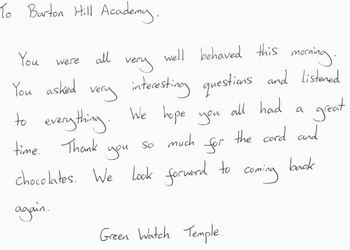 To Burton Hill Academy.
You were all very well behaved this morning.
You asked very interesting questions and listened
to everything. We hope you all had a great
time. Thank you so much for the card and
chocolates. We look forward to coming back
again.
Green Watch Temple.